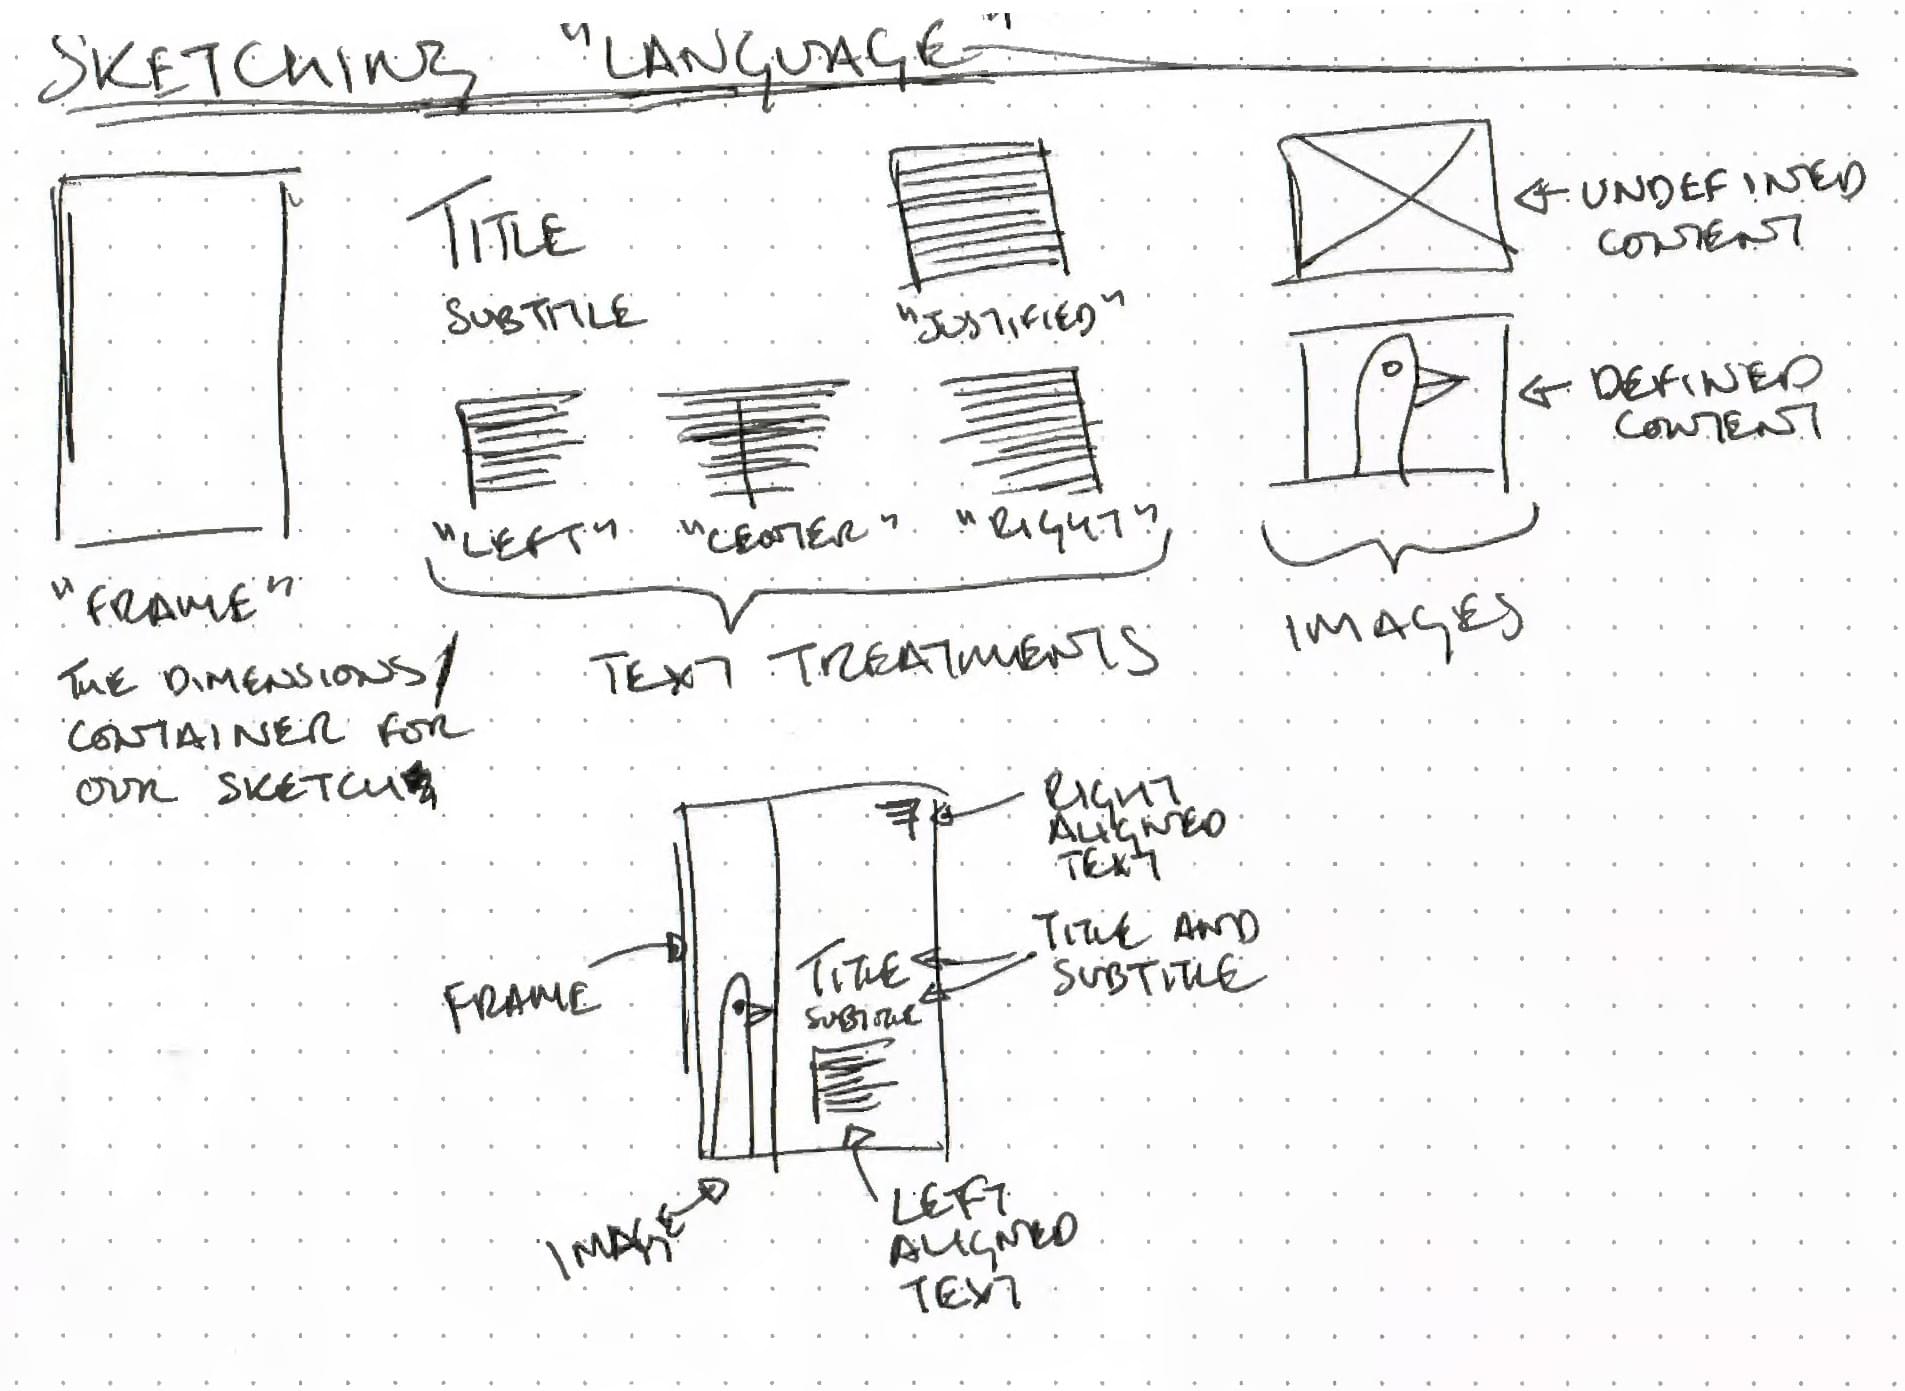 SKETCHING "LANGUAGE"
TITLE
SUBTITLE
"JUSTIFIED"
"LEFT" "CENTER" "RIGHT"
TEXT TREATMENTS
UNDEFINED
CONTENT
DEFINED
CONTENT
IMAGES
"FRAME"
THE DIMENSIONS/
CONTAINER FOR
OUR SKETCH
RIGHT
ALIGNED
TEXT
TITLE AND
SUBTITLE
TITLE
SUBTITLE
FRAME
IMAGE
LEFT
ALIGNED
TEXT